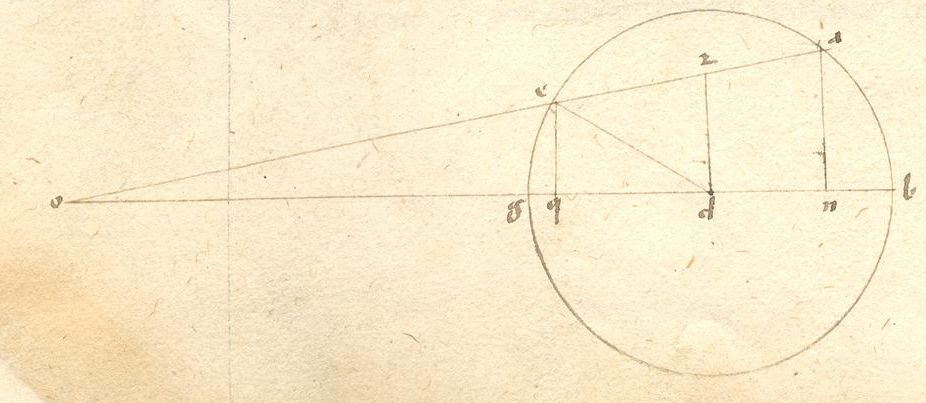 a
z
e
o
g
q
d
n
b